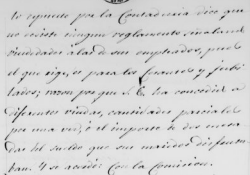 to espuesto por la Contaduria dice que
no existe ningun reglamento señaland
viudedades a las de sus empleados, pues
el que rige, es para los cesantes y jubi
lados; razon por que S. E. ha concedido a
diferentes viudas, cantidades parciales
por una vez, ó el importe de dos mesa
das del sueldo que sus maridos disfruta
ban. Y se acordó: Con la Comision.